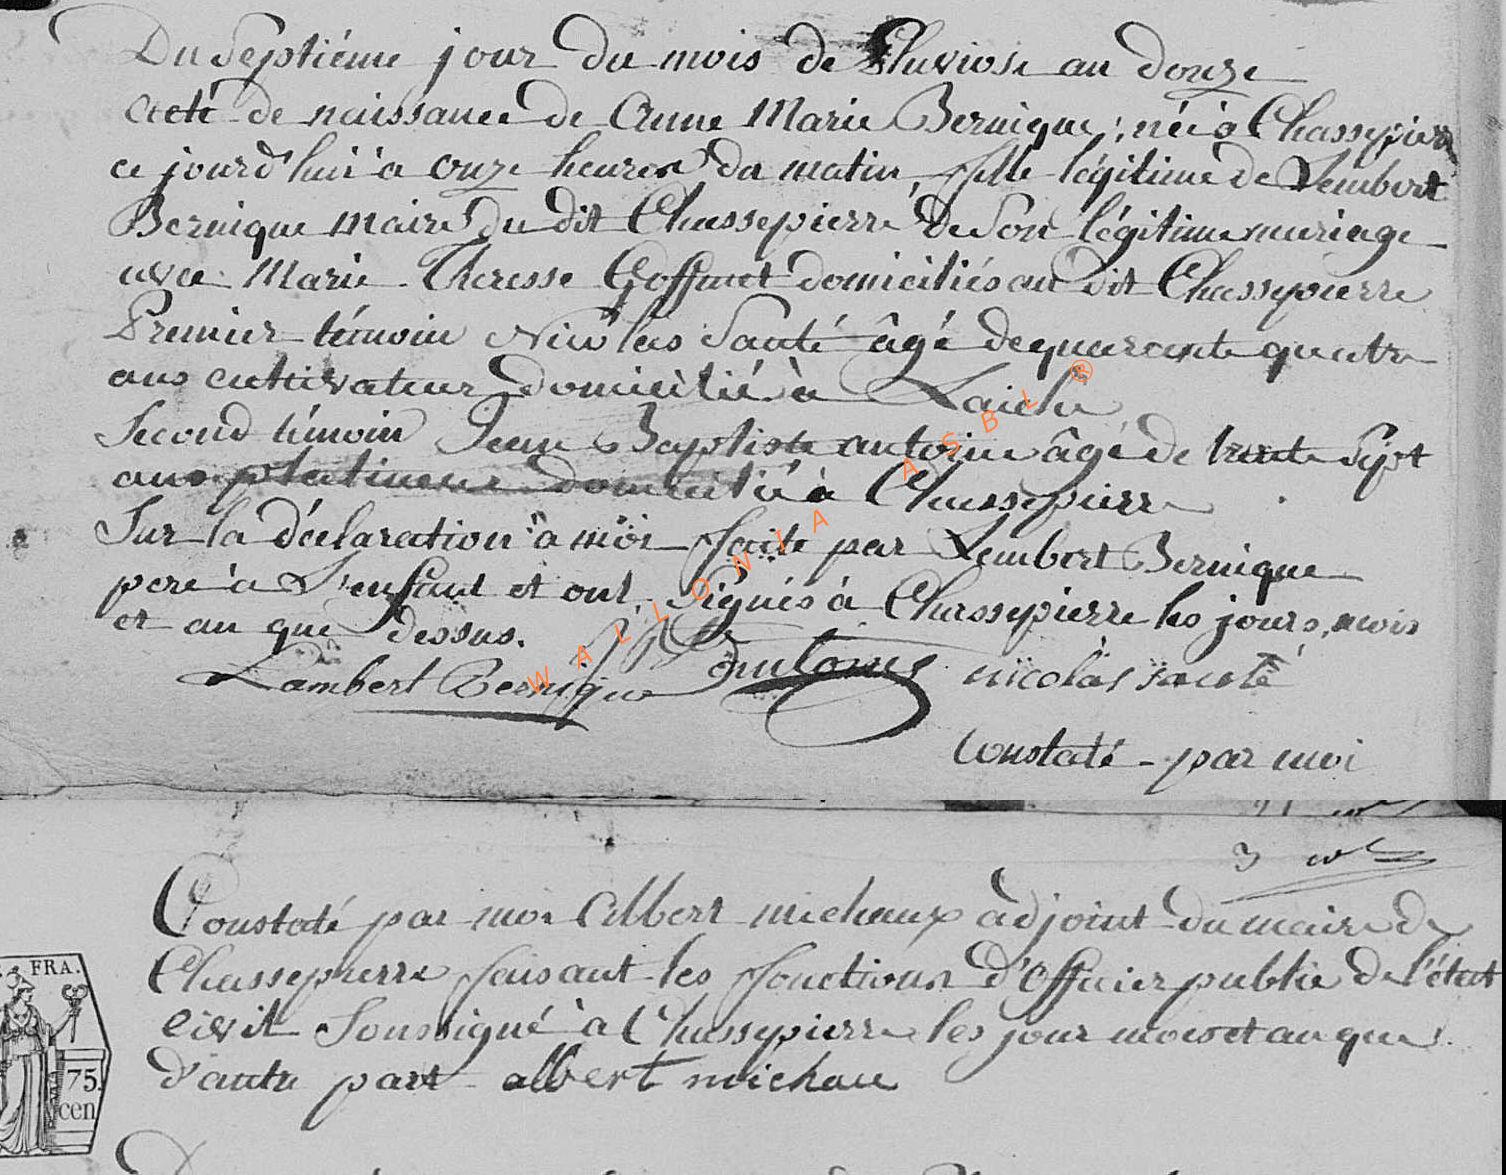 Du Septiéme jour du mois de Pluviose an douze
acte de naissance de Anne Marie Bernique, née à Chassepierre
ce jourd'hui à onze heures du matin, fille légitime de Lembert
Bernique maire du dit Chassepierre de son légitime mariage
avec Marie Theresse Goffinet domiciliés au dit Chassepierre
Premier témoin Nicolas Santé âgé de quarante quatre
ans cultivateur domicilié à Laiche
Second témoin Jean Baptiste antoine âgé de trente Sept
ans platineur domicilié à Chassepierre
Sur la déclaration à moi faite par Lembert Bernique
pere à L'enfant et ont Signés à Chassepierre les jours, mois
et an que dessus.
Lambert Bernique antoine nicolas santé
Constaté par moi
WALLONIA ASBL ®
3
Constaté par moi Albert michaux adjoint du maire de
Chassepierre faisant les fonctions d'Officier public de l'état
Civil Soussigné à Chassepierre les jour mois et an que
d'autre part albert michau
FRA.
75.
cen